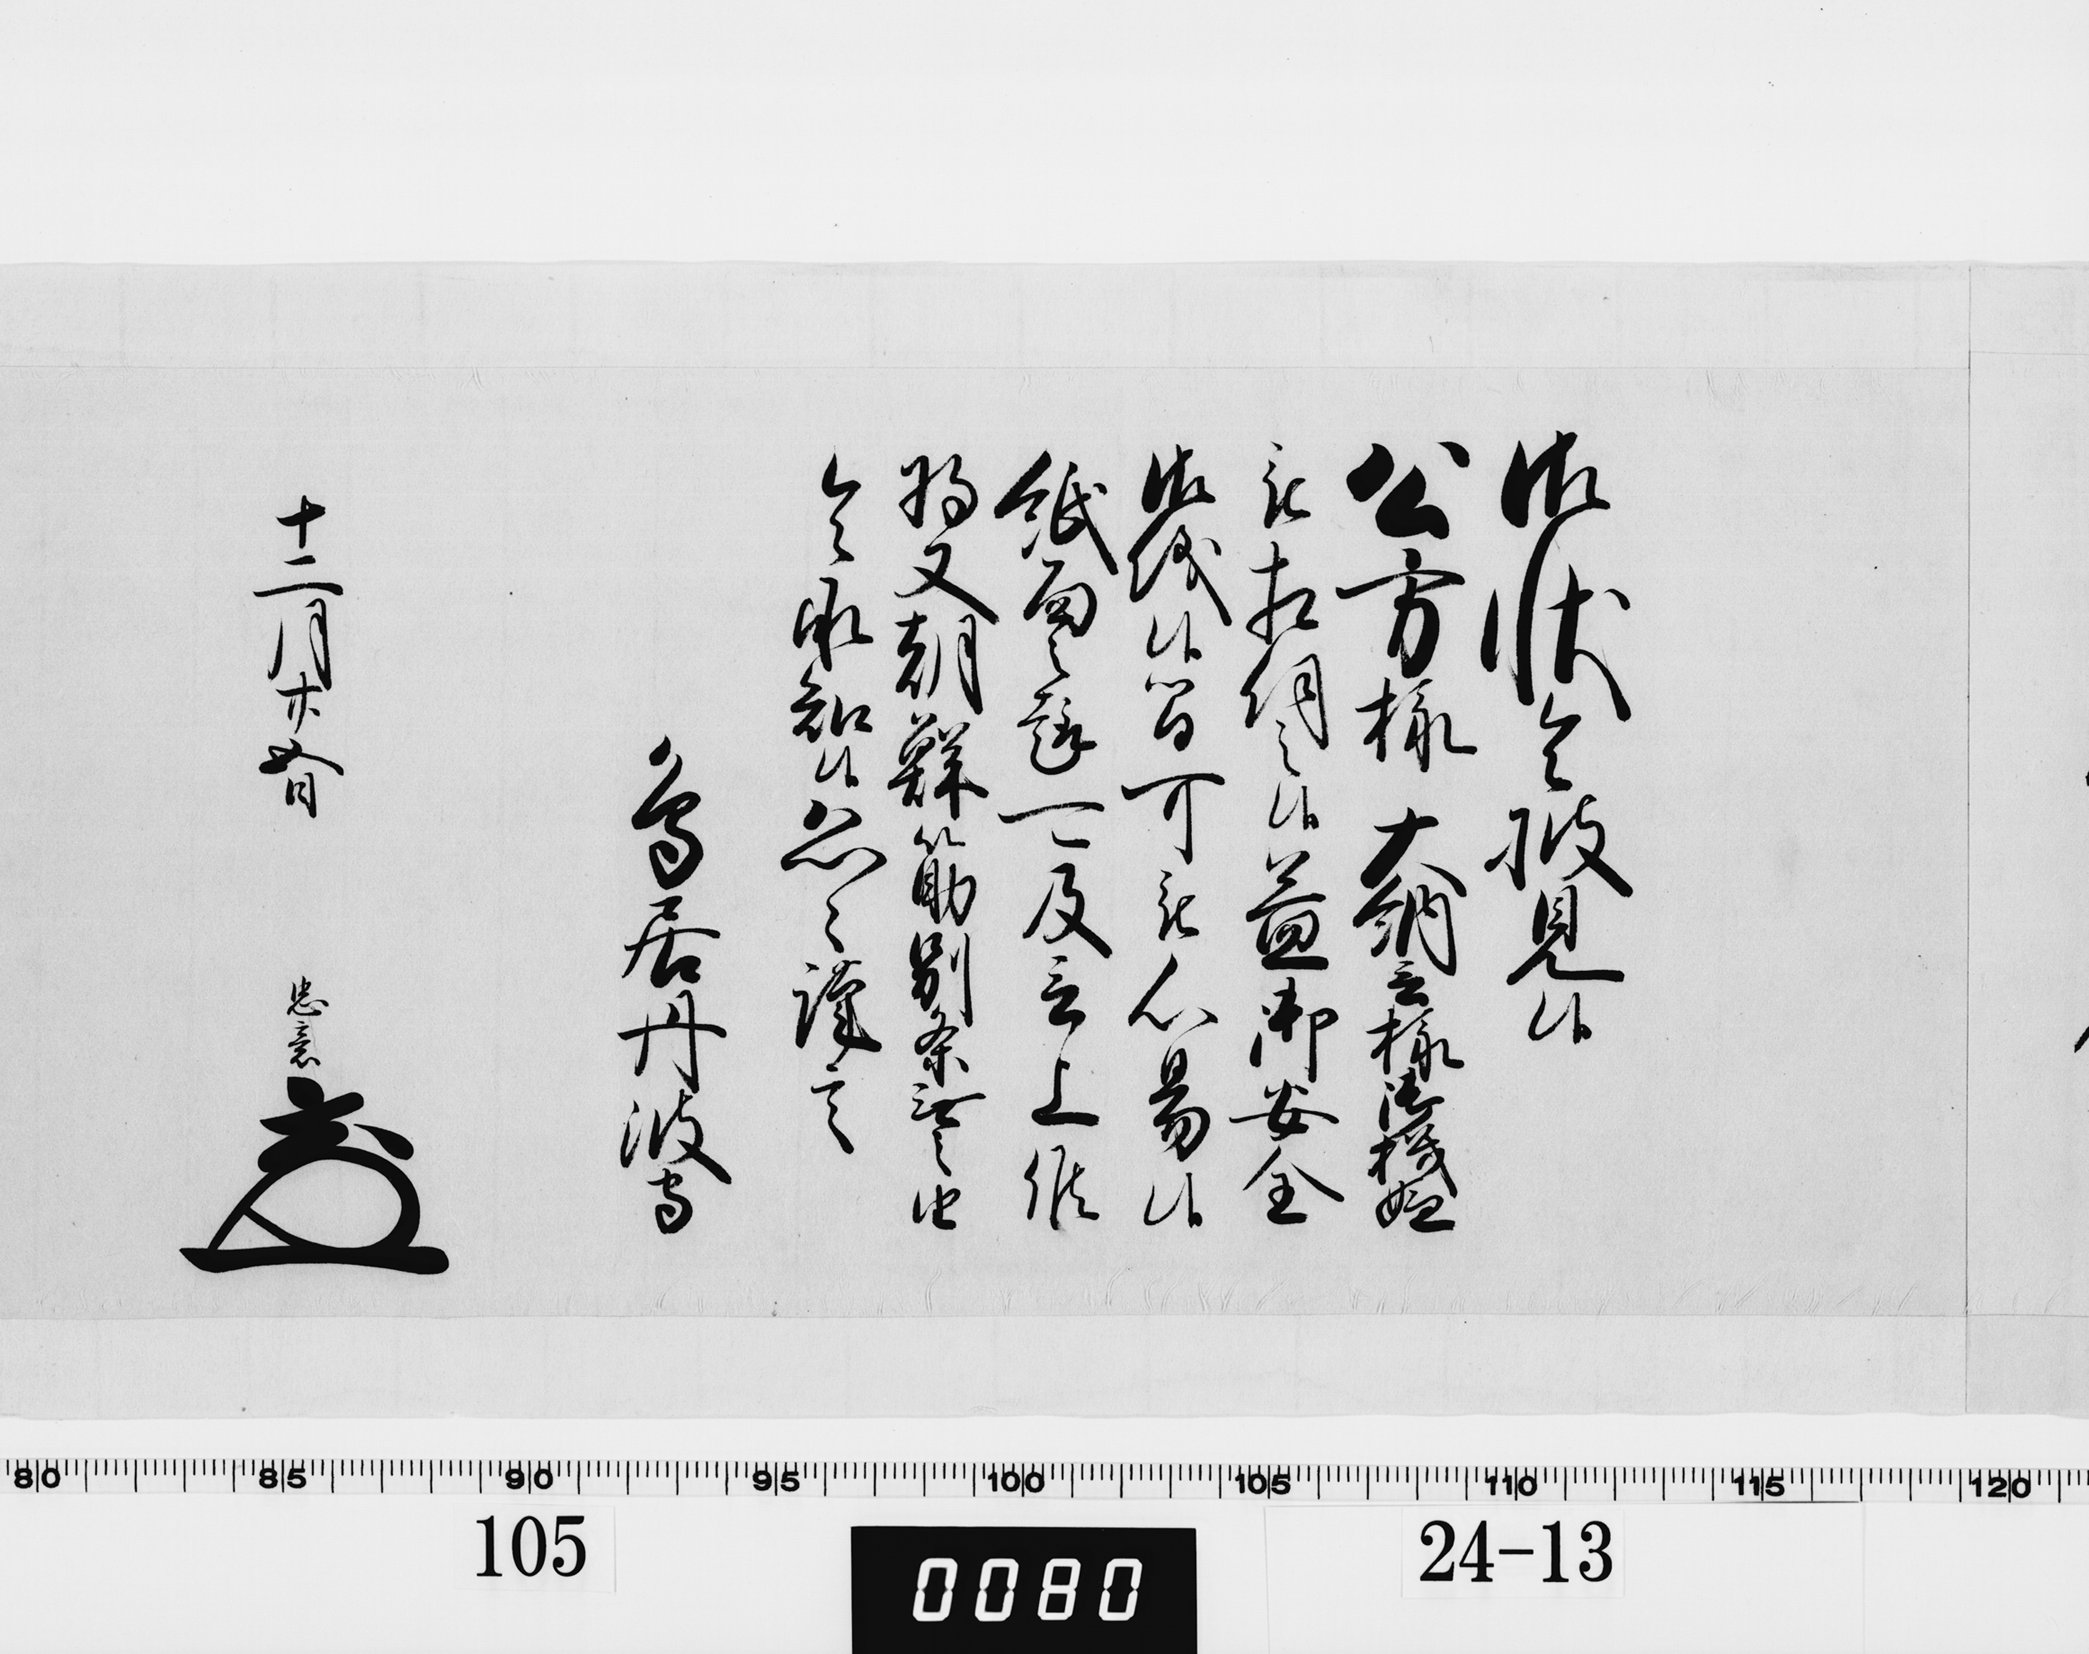 御状令披見候
公方様 大納言様御機嫌
被相伺之候益御安全
御儀候間可被心易候
紙面之趣一〻及言上候
将又朝鮮筋別条無之由
令承知候恐〻謹言
鳥居丹波守
十二月廿五日 忠意
80 85 90 95 100 105 110 115 120
105 0080 24-13